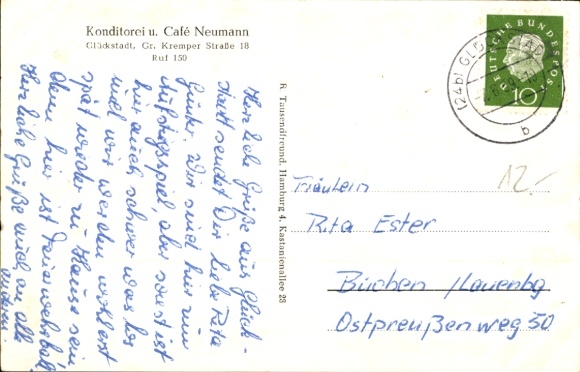 Konditorei u. Café Neumann
Glückstadt, Gr. Kremper Straße 18
Ruf 150
Herzliche Grüße aus Glück-
stadt sendet Dir liebe Rita
Günter. Wir sind hier zum
Aufstiegspiel, aber sonst ist
hier auch schwer was los
und wir werden wohl erst
spät wieder zu Hause sein
denn hier ist Feuerwehrball.
Herzliche Grüße auch an alle
anderen.
R. Tausendfreund, Hamburg 4, Kastanienallee 28
DEUTSCHE BUNDESPOST
10
(24b) GLÜCKSTADT
a
12.-
Fräulein
Rita Ester
Büchen /Lauenbg
Ostpreußenweg 50